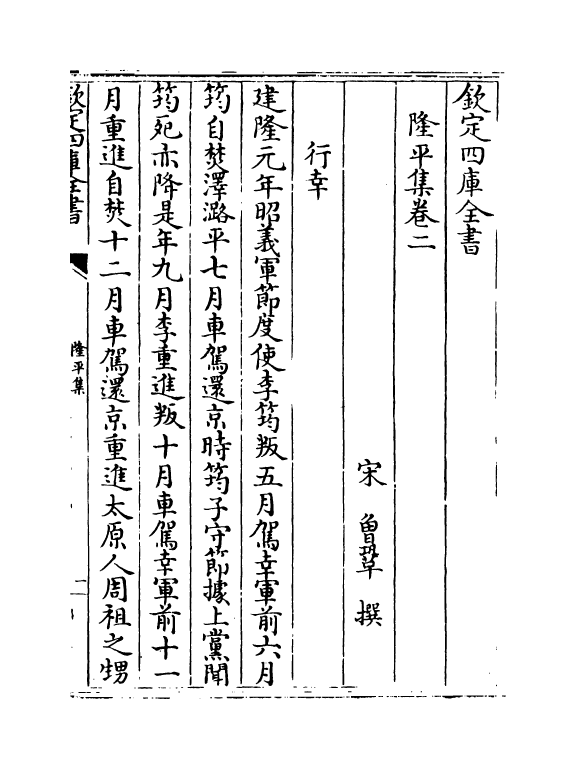 欽定四庫全書
隆平集卷二
宋 曾鞏 撰
行幸
建隆元年昭義軍節度使李筠叛五月駕幸軍前六月
筠自焚澤潞平七月車駕還京時筠子守節據上黨聞
筠死亦降是年九月李重進叛十月車駕幸軍前十一
月重進自焚十二月車駕還京重進太原人周祖之甥
欽定四庫全書
隆平集